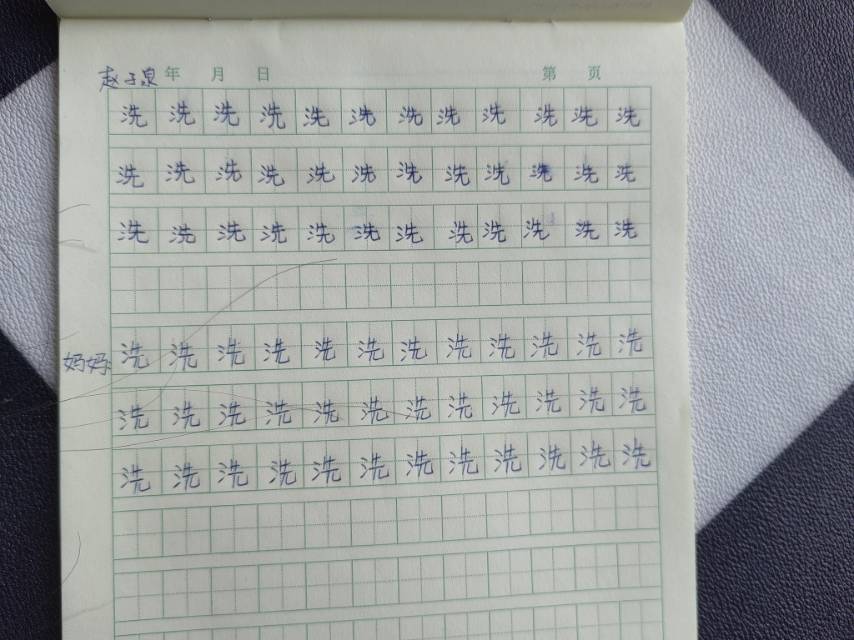 赵子泉 年 月 日 第 页
洗 洗 洗 洗 洗 洗 洗 洗 洗 洗 洗 洗
洗 洗 洗 洗 洗 洗 洗 洗 洗 洗 洗 洗
洗 洗 洗 洗 洗 洗 洗 洗 洗 洗 洗 洗
妈妈: 洗 洗 洗 洗 洗 洗 洗 洗 洗 洗 洗 洗
洗 洗 洗 洗 洗 洗 洗 洗 洗 洗 洗 洗
洗 洗 洗 洗 洗 洗 洗 洗 洗 洗 洗 洗